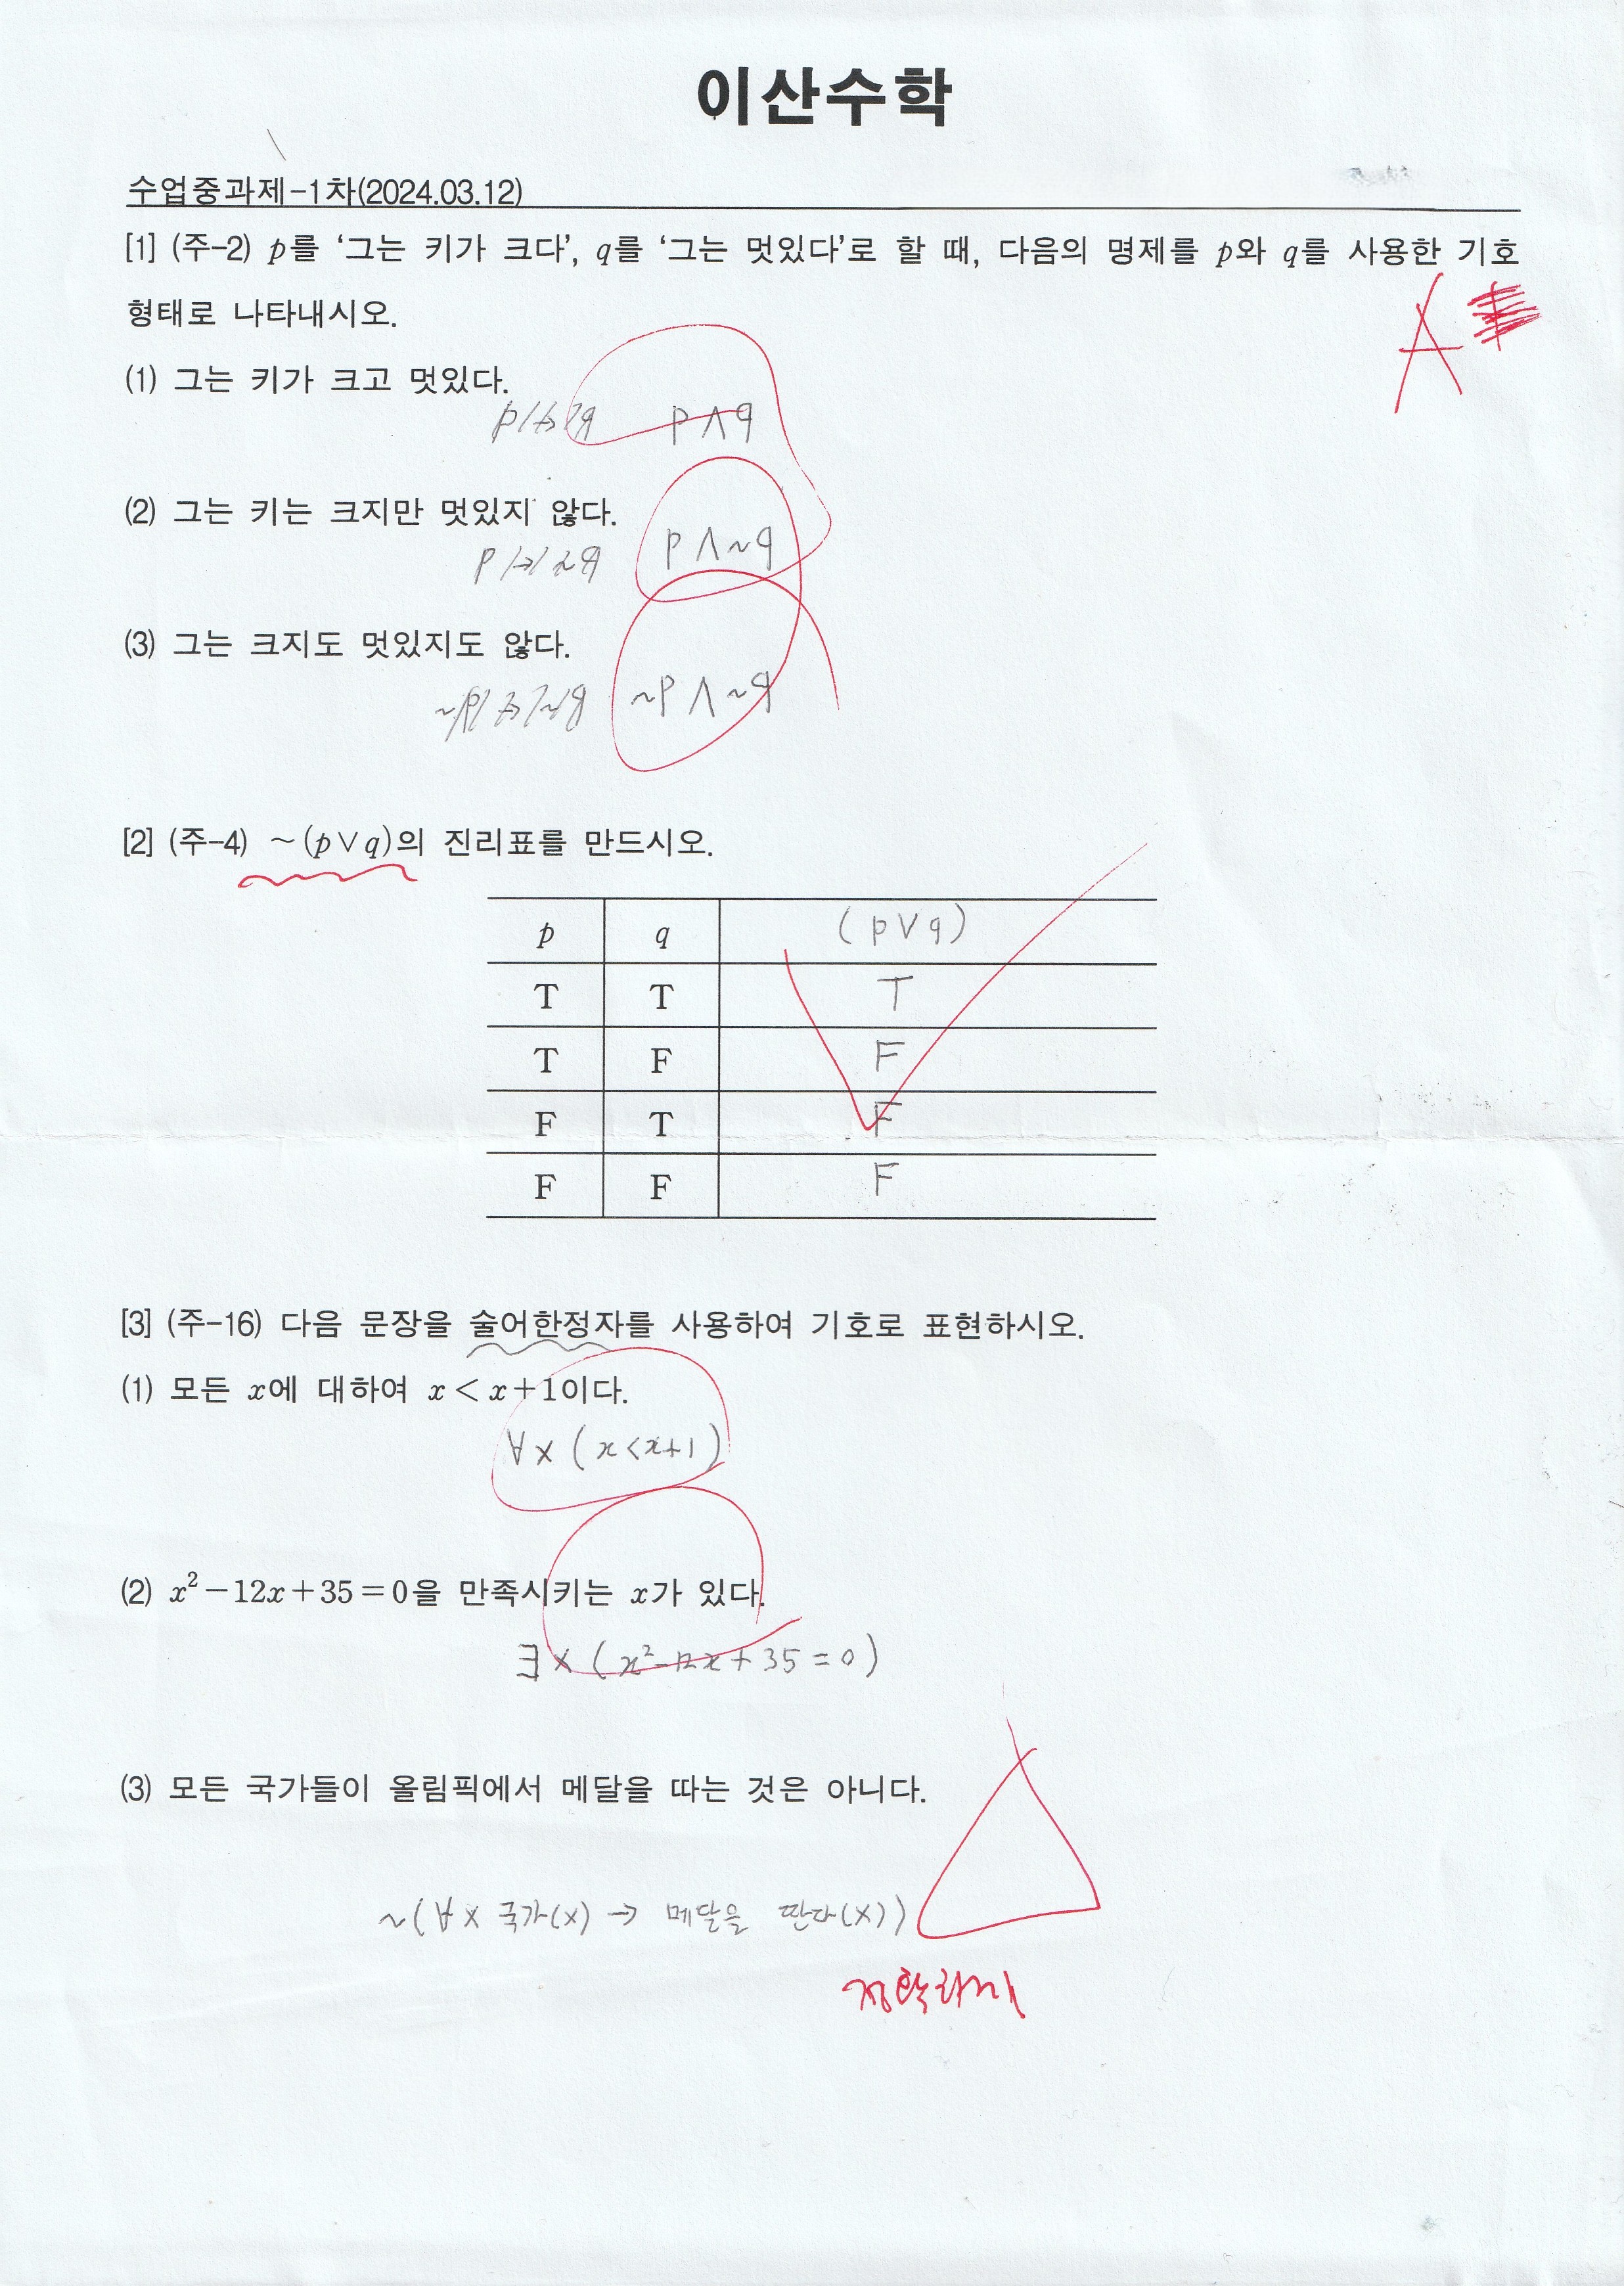 이산수학
수업중과제-1차(2024.03.12)
[1] (주-2) p를 ‘그는 키가 크다’, q를 ‘그는 멋있다’로 할 때, 다음의 명제를 p와 q를 사용한 기호
형태로 나타내시오.
A
(1) 그는 키가 크고 멋있다.
p → q p ∧ q
(2) 그는 키는 크지만 멋있지 않다.
p → ~q p ∧ ~q
(3) 그는 크지도 멋있지도 않다.
~p → ~q ~p ∧ ~q
[2] (주-4) ~(p∨q)의 진리표를 만드시오.
p q (p∨q)
T T T
T F F
F T F
F F F
[3] (주-16) 다음 문장을 술어한정자를 사용하여 기호로 표현하시오.
(1) 모든 x에 대하여 x < x+1이다.
∀x (x<x+1)
(2) x²-12x+35=0을 만족시키는 x가 있다.
∃x (x²-12x+35=0)
(3) 모든 국가들이 올림픽에서 메달을 따는 것은 아니다.
~(∀x 국가(x) → 메달을 딴다(x))